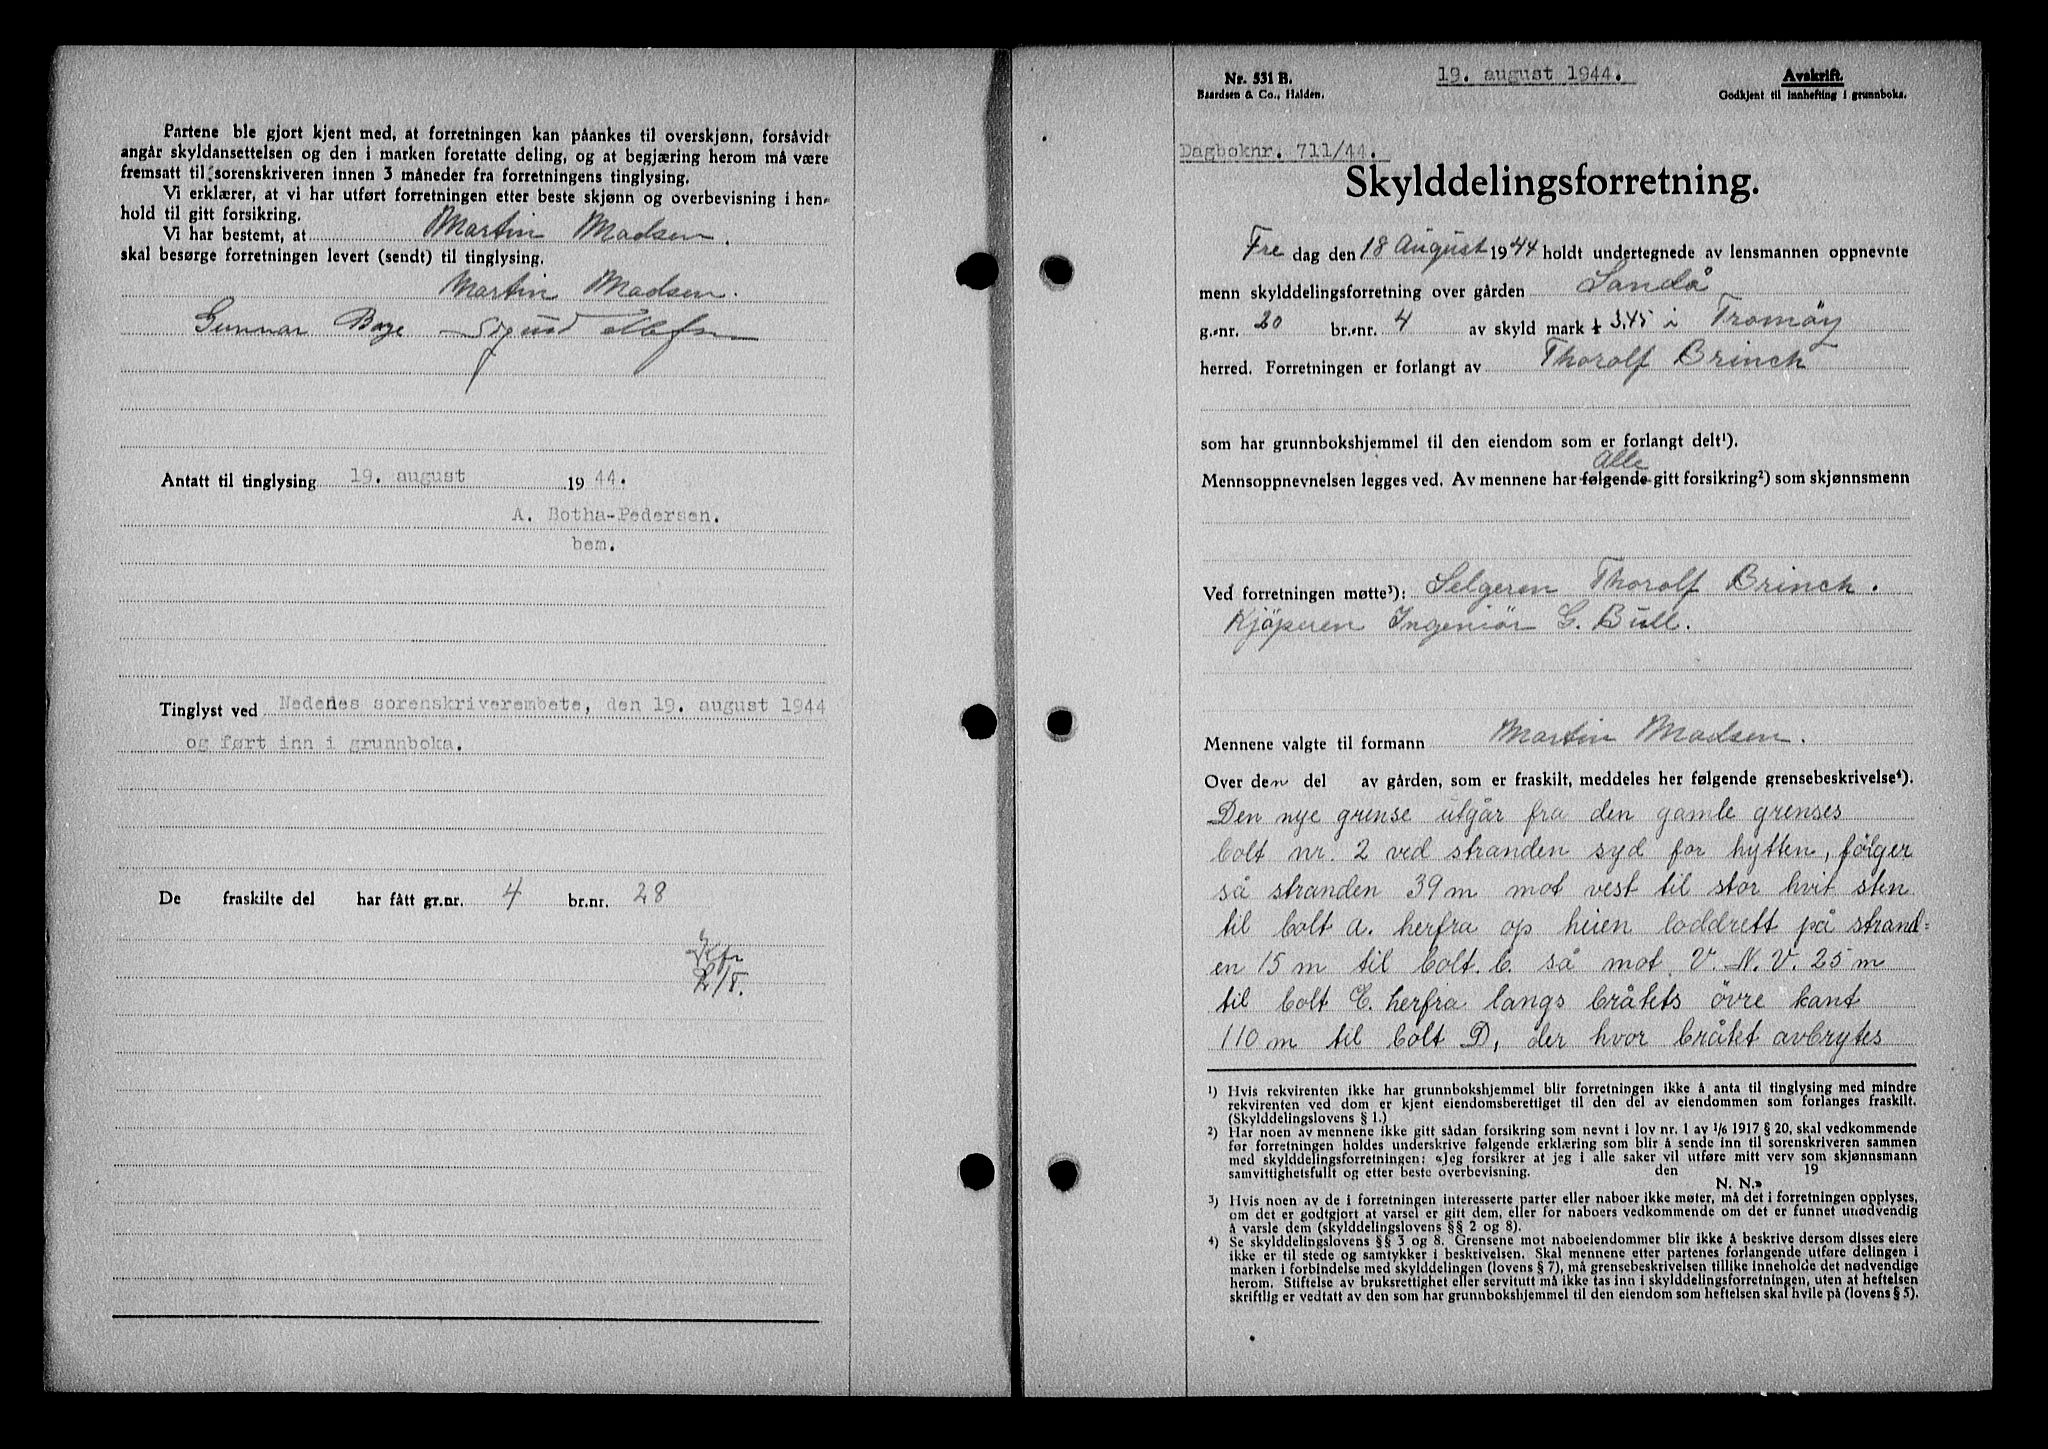 Partene ble gjort kjent med, at forretningen kan påankes til overskjønn, forsåvidt
angår skyldansettelsen og den i marken foretatte deling, og at begjæring herom må være
fremsatt til sorenskriveren innen 3 måneder fra forretningens tinglysing.
Vi erklærer, at vi har utført forretningen etter beste skjønn og overbevisning i hen-
hold til gitt forsikring.
Vi har bestemt, at Martin Madsen.
skal besørge forretningen levert (sendt) til tinglysing.
Martin Madsen.
Gunnar Boye Sigurd
Antatt til tinglysing 19. august 1944.
A. Botha-Pedersen.
bem.
Tinglyst ved Nedenes sorenskriverembete, den 19. august 1944
og ført inn i grunnboka.
De fraskilte del har fått gr.nr. 4 br.nr. 28
Nr. 531 B.
Baardsen & Co., Halden.
19. august 1944.
Avskrift.
Godkjent til innhefting i grunnboka.
Dagboknr. 711/44.
Skylddelingsforretning.
Fre dag den 18 August 1944 holdt undertegnede av lensmannen oppnevnte
menn skylddelingsforretning over gården Sandå
g.-nr. 20 br.-nr. 4 av skyld mark 3,45 i Tromöy
herred. Forretningen er forlangt av Thorolf Brinch
som har grunnbokshjemmel til den eiendom som er forlangt delt¹).
Alle
Mennsoppnevnelsen legges ved. Av mennene har følgende gitt forsikring²) som skjønnsmenn
Ved forretningen møtte³): Selgeren Thorolf Brinch.
Kjöperen Ingeniör G. Bull.
Mennene valgte til formann Martin Madsen.
Over den del av gården, som er fraskilt, meddeles her følgende grensebeskrivelse⁴).
Den nye grense utgår fra den gamle grenses
bolt nr. 2 ved stranden syd for hytten, følger
så stranden 39 m mot vest til stor hvit sten
til bolt a. herfra op heien loddrett på strand=
en 15 m til bolt. b. så mot V. N. V. 25 m
til bolt C. herfra langs bråtets övre kant
110 m til bolt D, der hvor bråtet avbrytes
¹) Hvis rekvirenten ikke har grunnbokshjemmel blir forretningen ikke å anta til tinglysing med mindre
rekvirenten ved dom er kjent eiendomsberettiget til den del av eiendommen som forlanges fraskilt.
(Skylddelingslovens § 1.)
²) Har noen av mennene ikke gitt sådan forsikring som nevnt i lov nr. 1 av 1/6 1917 § 20, skal vedkommende
før forretningen holdes underskrive følgende erklæring som blir å sende inn til sorenskriveren sammen
med skylddelingsforretningen: «Jeg forsikrer at jeg i alle saker vil utføre mitt verv som skjønnsmann
samvittighetsfullt og etter beste overbevisning. den 19
N. N.»
³) Hvis noen av de i forretningen interesserte parter eller naboer ikke møter, må det i forretningen opplyses,
om det er godtgjort at varsel er gitt dem, eller for naboers vedkommende om det er funnet unødvendig
å varsle dem (skylddelingslovens §§ 2 og 8).
⁴) Se skylddelingslovens §§ 3 og 8. Grensene mot naboeiendommer blir ikke å beskrive dersom disses eiere
ikke er til stede og samtykker i beskrivelsen. Skal mennene etter partenes forlangende utføre delingen i
marken i forbindelse med skylddelingen (lovens § 7), må grensebeskrivelsen tillike inneholde det nødvendige
herom. Stiftelse av bruksrettighet eller servitutt må ikke tas inn i skylddelingsforretningen, uten at heftelsen
skriftlig er vedtatt av den som har grunnbokshjemmel til den eiendom som heftelsen skal hvile på (lovens § 5).